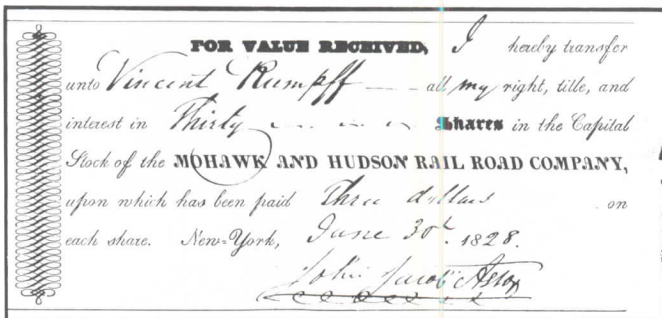 FOR VALUE RECEIVED, I hereby transfer
unto Vincent Rumpff all my right, title, and
interest in Thirty Shares in the Capital
Stock of the MOHAWK AND HUDSON RAIL ROAD COMPANY,
upon which has been paid Three dollars on
each share. New-York, June 30th. 1828.
John Jacob Astor